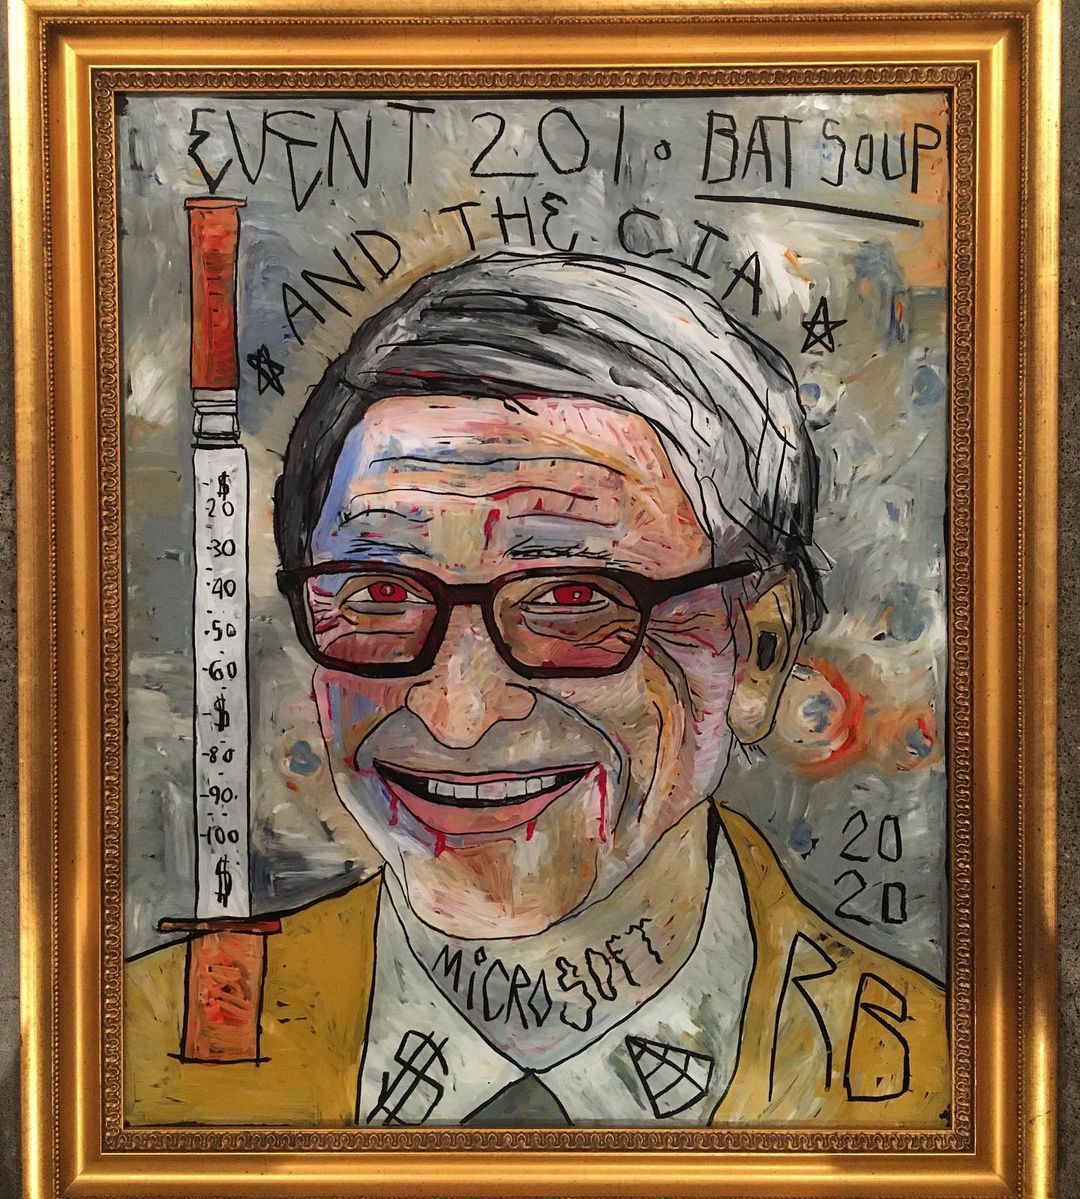 EVENT 201. BAT SOUP
AND THE CIA
$
20
-30
-40
-50
-60
$
-80
-90.
-100
$
20
20
MiCROSOFT
RB
$